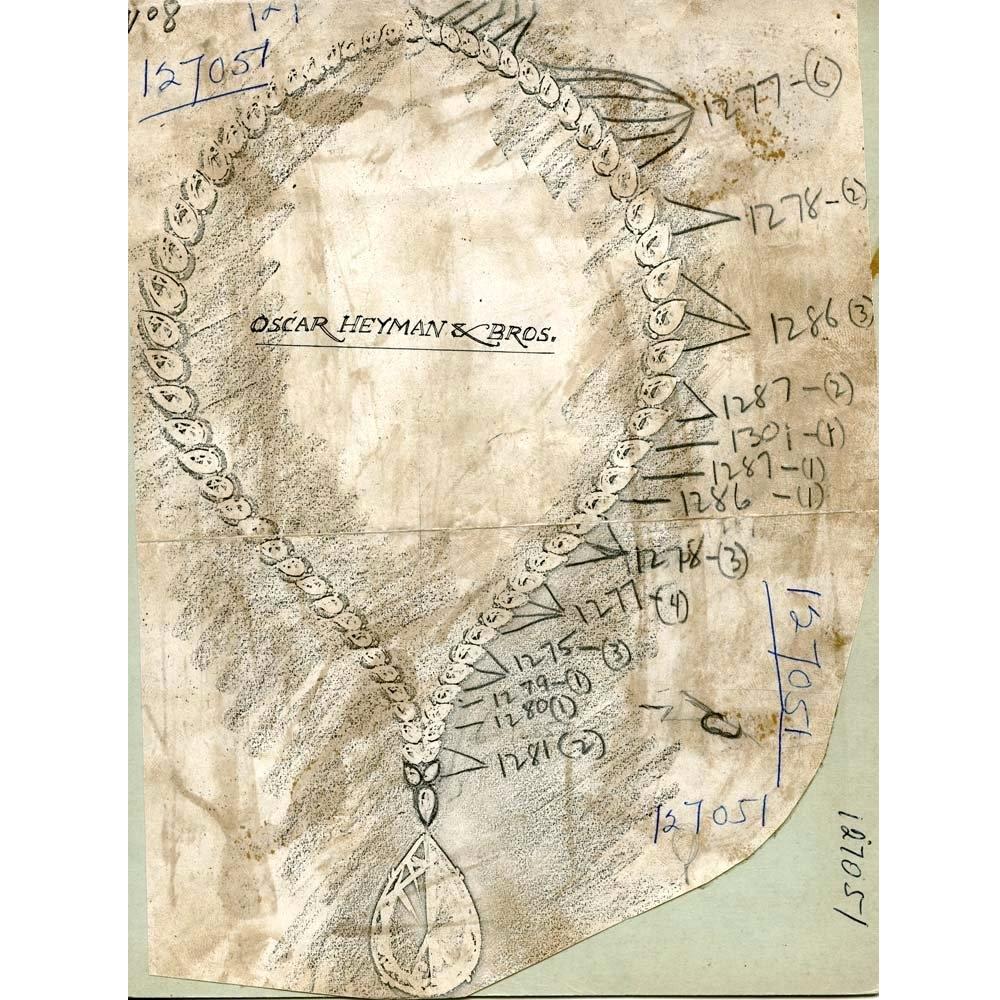 127051
1277-(6)
1278-(2)
1286 (3)
OSCAR HEYMAN & BROS.
1287-(2)
1301-(1)
1287-(1)
1286 -(1)
1278-(3)
1277-(4)
1275-(3)
1279-(1)
1280(1)
1281(2)
127051
127051
127051